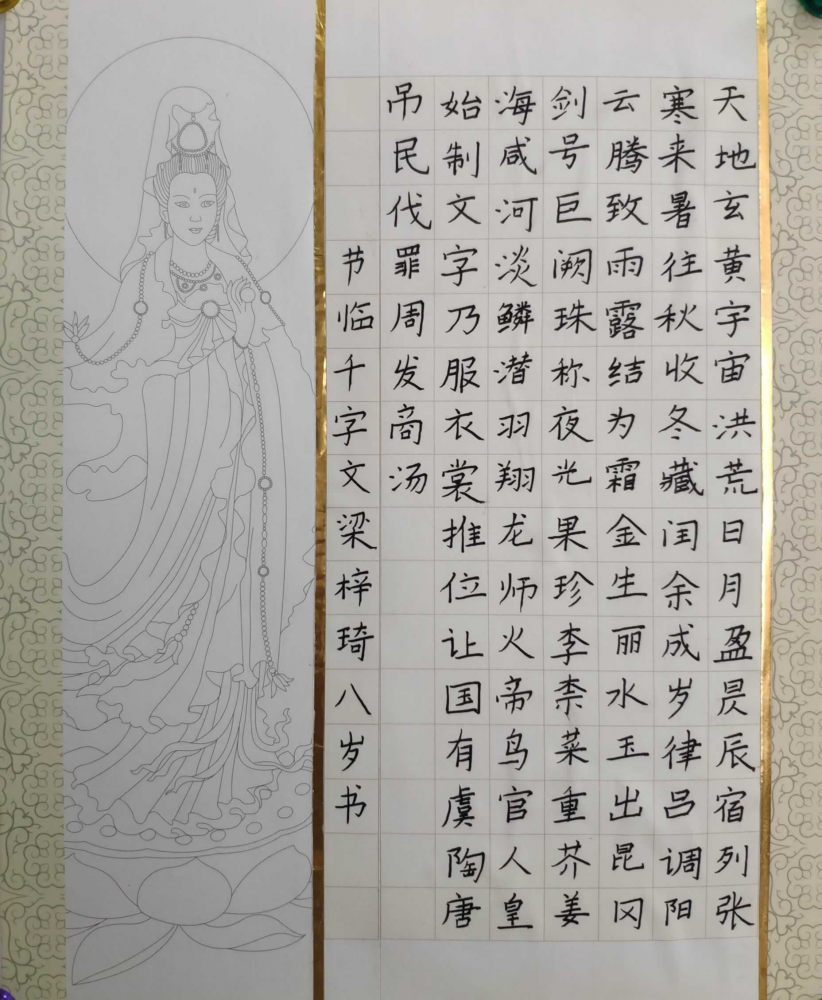 天地玄黄宇宙洪荒日月盈昃辰宿列张
寒来暑往秋收冬藏闰余成岁律吕调阳
云腾致雨露结为霜金生丽水玉出昆冈
剑号巨阙珠称夜光果珍李柰菜重芥姜
海咸河淡鳞潜羽翔龙师火帝鸟官人皇
始制文字乃服衣裳推位让国有虞陶唐
吊民伐罪周发商汤
节临千字文梁梓琦八岁书